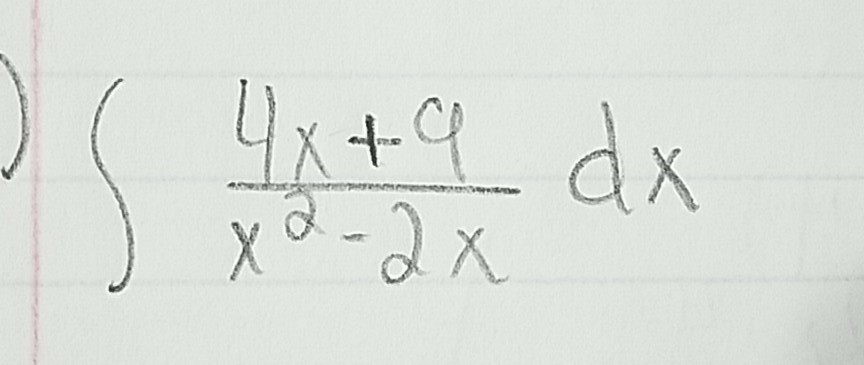 ) ∫ (4x+9)/(x²-2x) dx